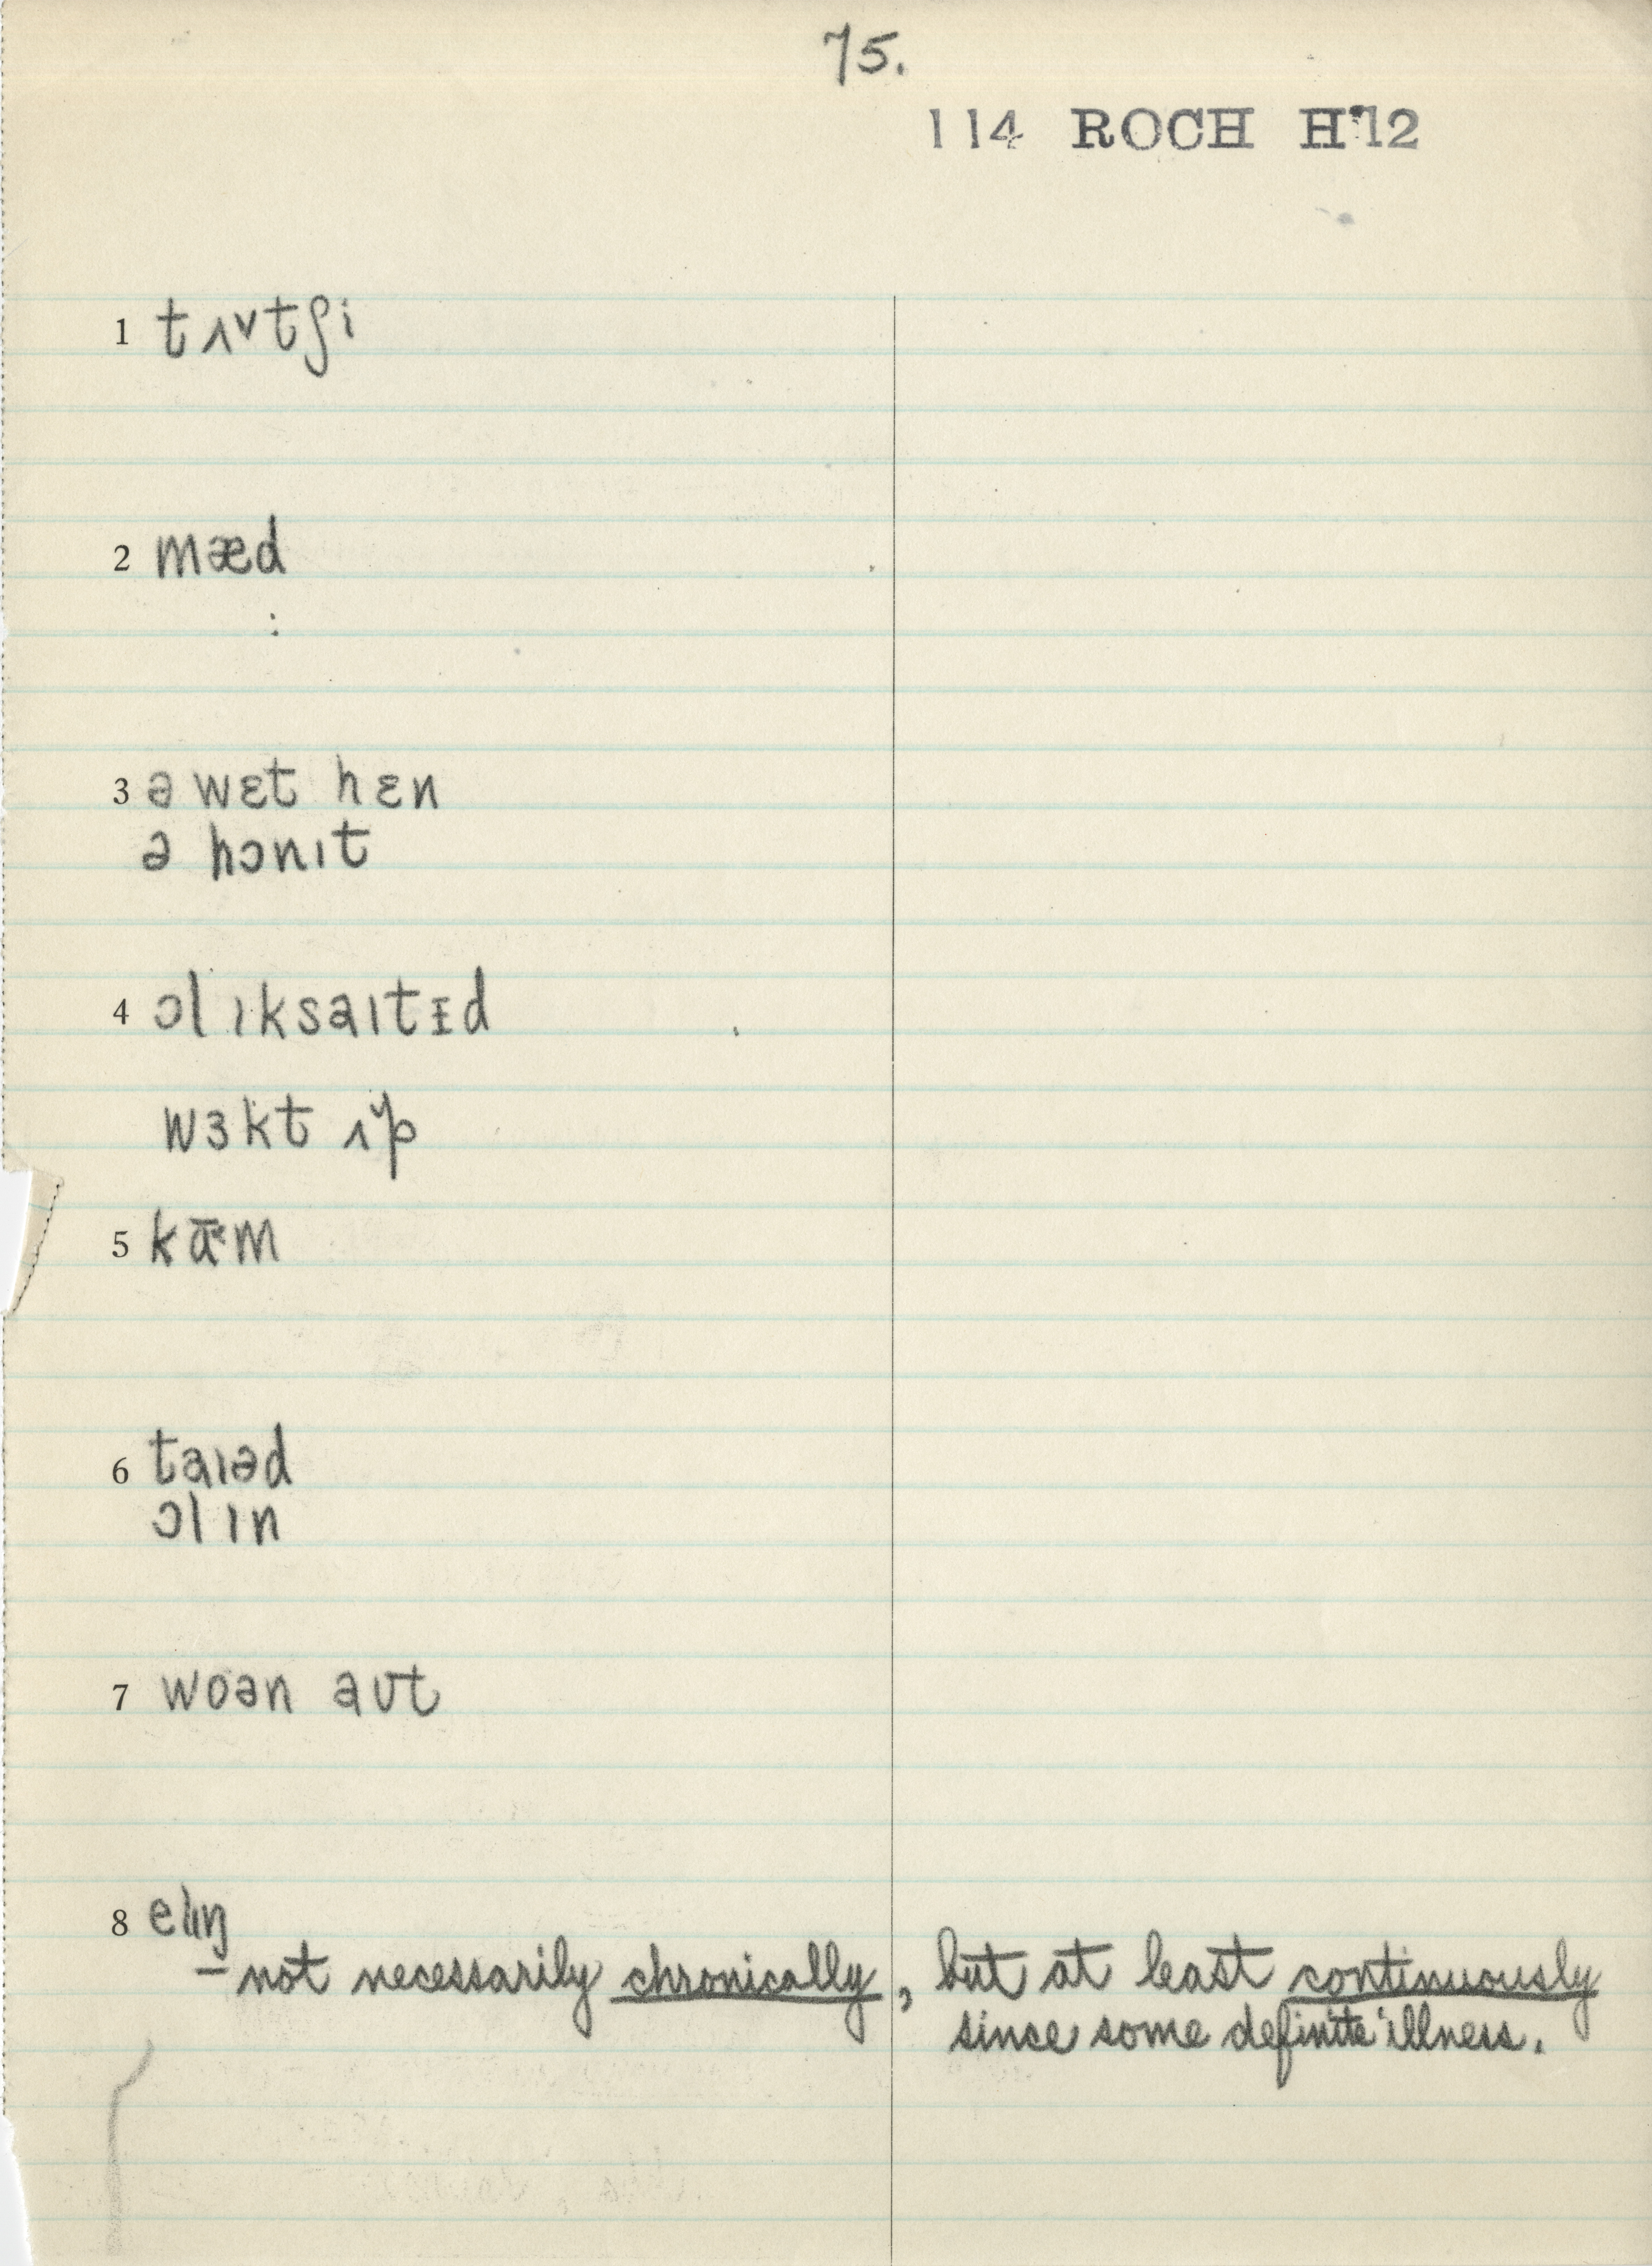 75.
114 ROCH H'12
1 tʌ˅tʃi
2 mæd
3 ə wɛt hɛn
ə hɔnɪt
4 ɔl ɪksaɪtɪd
wɜkt ʌ˅p
5 kāˑm
6 taɪəd
ɔl ɪn
7 woən aʊt
8 elɪŋ
– not necessarily chronically, but at least continuously
since some definite illness.